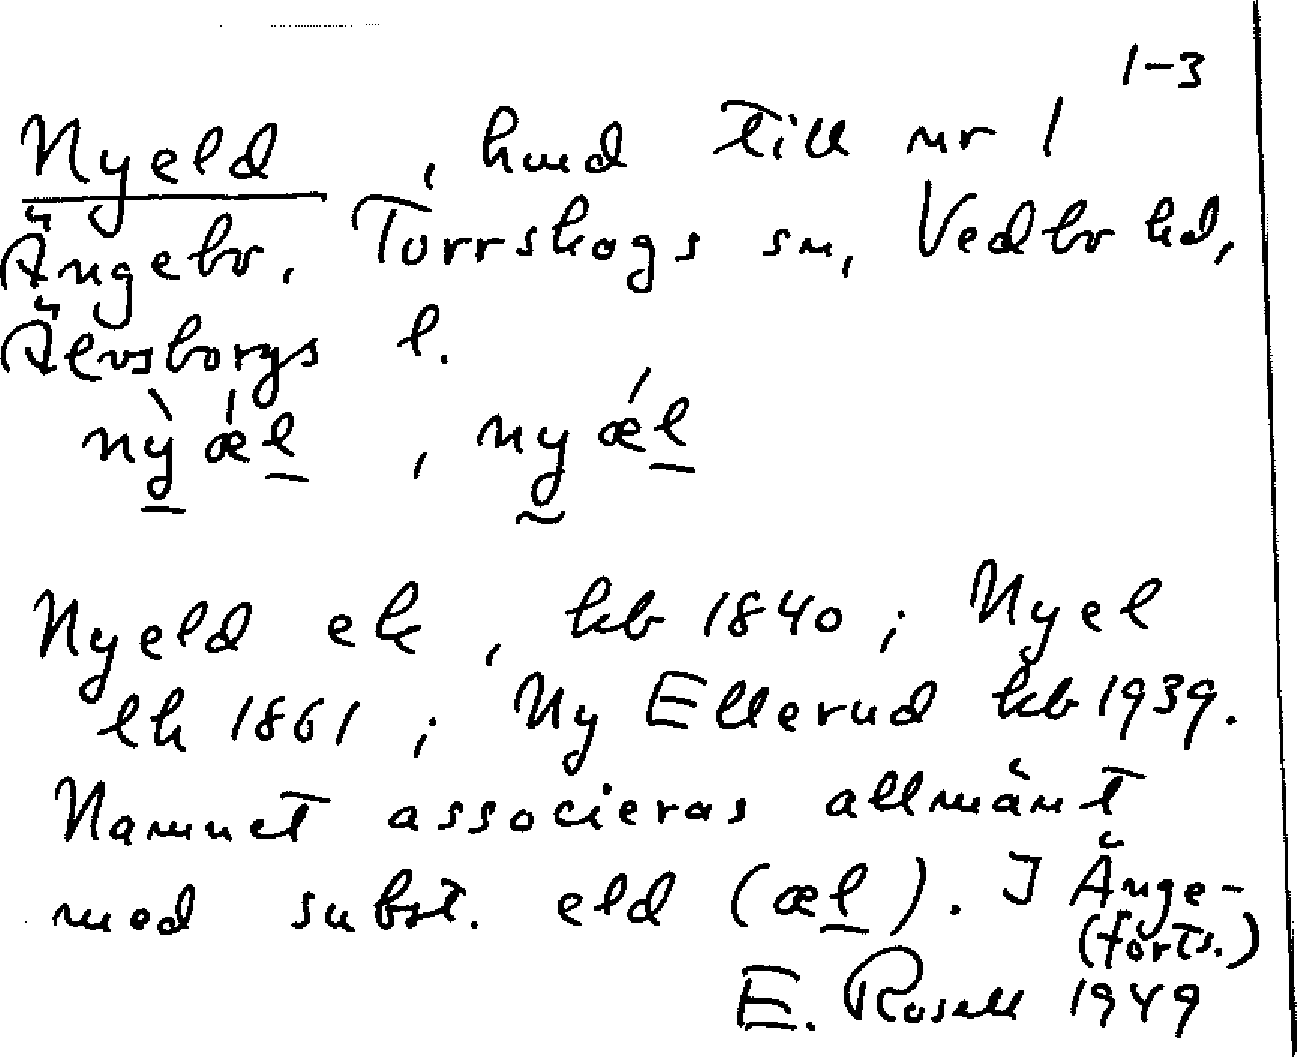 1-3
Nyeld, hmd till nr 1
Ängebo, Törrskogs sn, Vedbo hd,
Älvsborgs l.
nỳ ǽl, ny ǽl
Nyeld ek, kb 1840; Nyel
lk 1861; Ny Ellerud kb 1939.
Namnet associeras allmänt
med subst. eld (æl). I Änge-
(forts.)
E. Rosell 1949